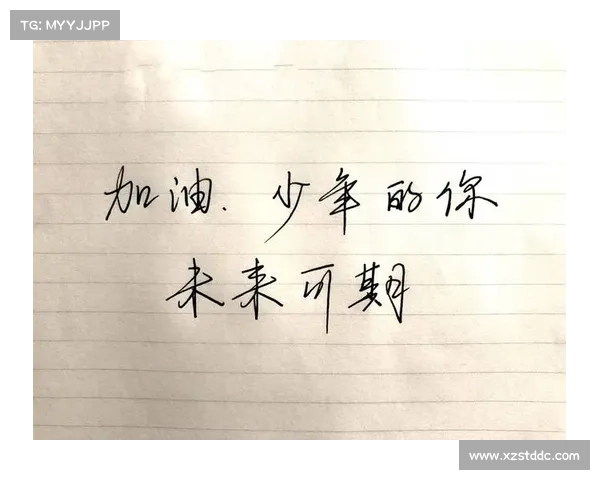 TG: MYYJJPP
加油.少年的你
未来可期
www.xzstddc.com